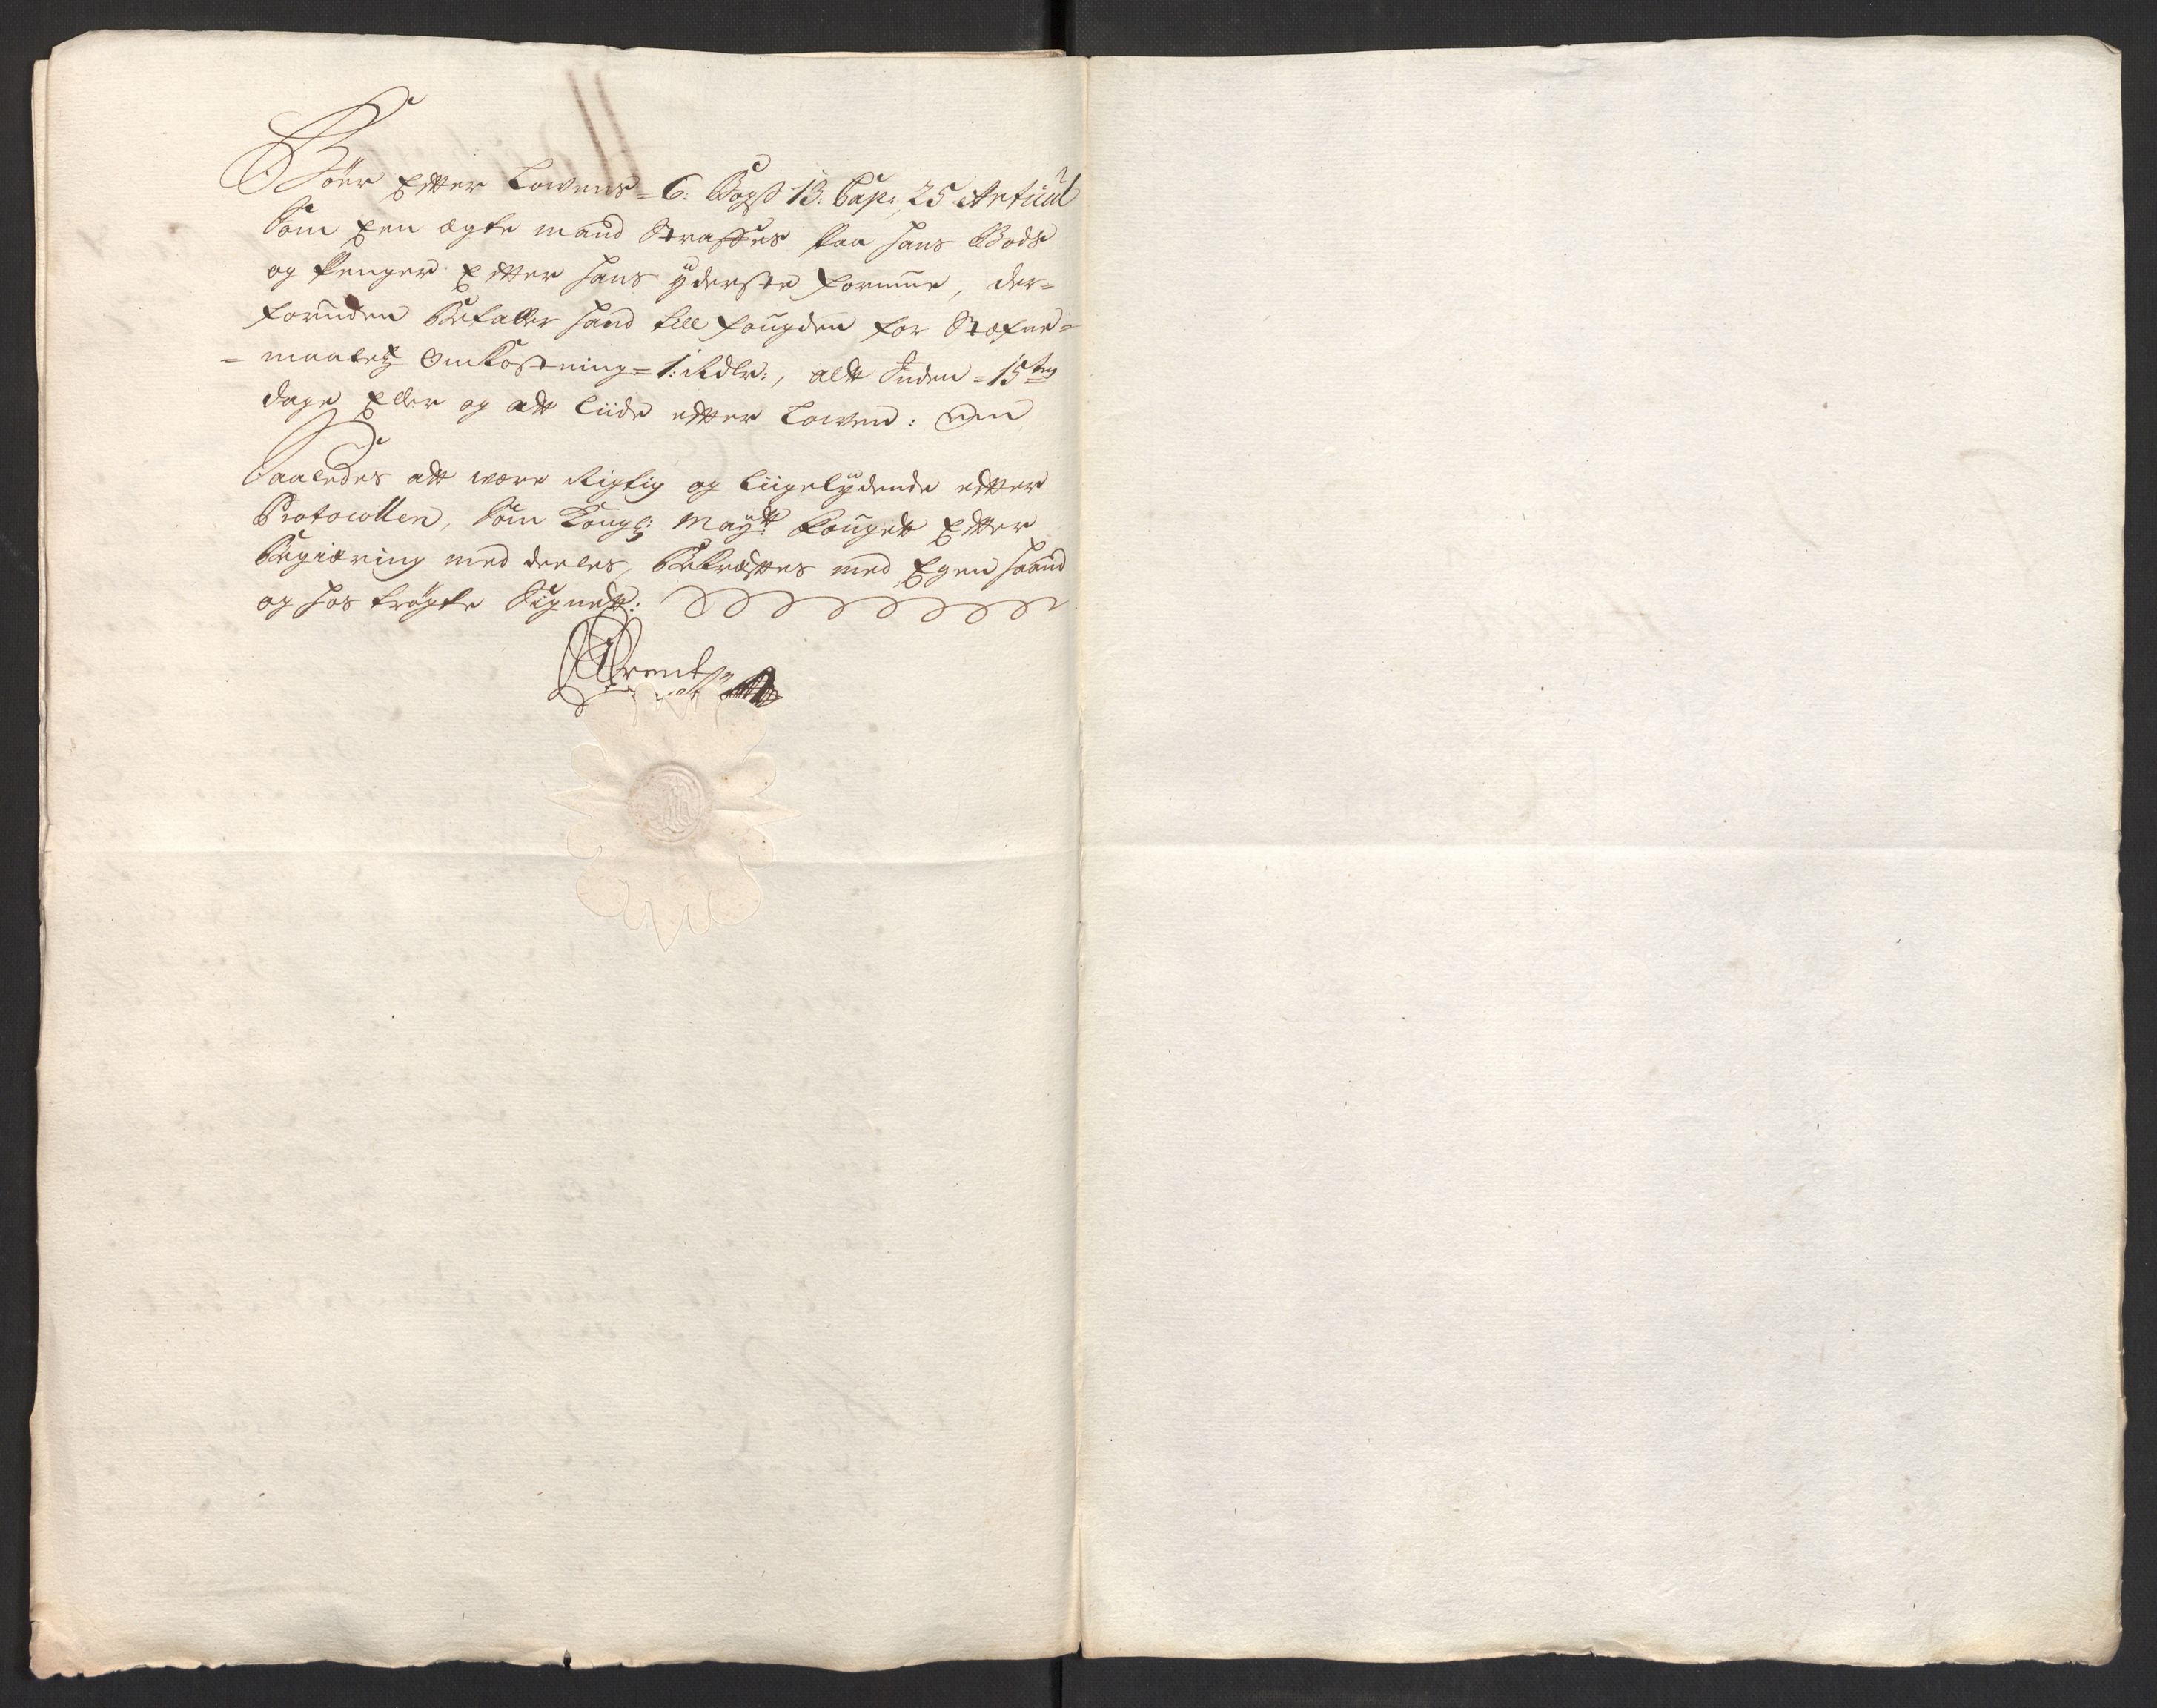 Böer Efter Lowens = 6: Bogß 13: Cap: 25 Articul
Som Een ægte mand Straffes paa hans Bode
og Penger Efter hans ÿderste formue, der=
foruden Betaller hand till fougden for Stefne=
=maaletz Omkostning = 1: Rdlr:, alt Inden = 15ten
dage Eller og att liide efter Lowen:
Saaledes att være Rigtig og liigelÿdende efter
Protocollen, som Kongl: Maÿtt: Fougett Efter
Begiæring med deeles, Bekræftes med Egen haand
og hos trögte Signett: